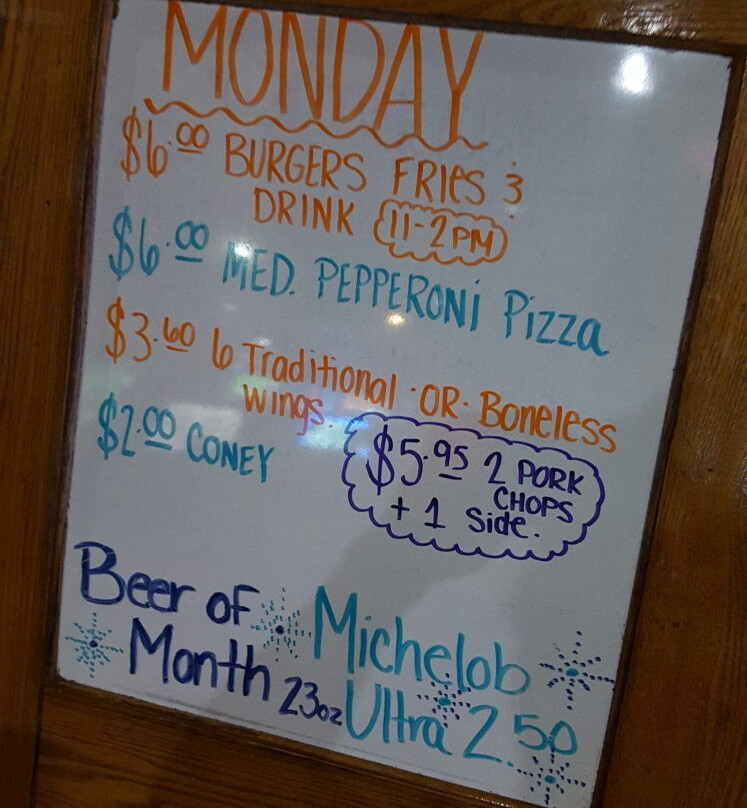 MONDAY
$6.00 BURGERS FRIES &
DRINK 11-2PM
$6.00 MED. PEPPERONi Pizza
$3.60 6 Traditional OR Boneless
wings.
$2.00 CONEY
$5.95 2 PORK
CHOPS
+ 1 Side.
Beer of
Month 23oz
Michelob
Ultra 2.50